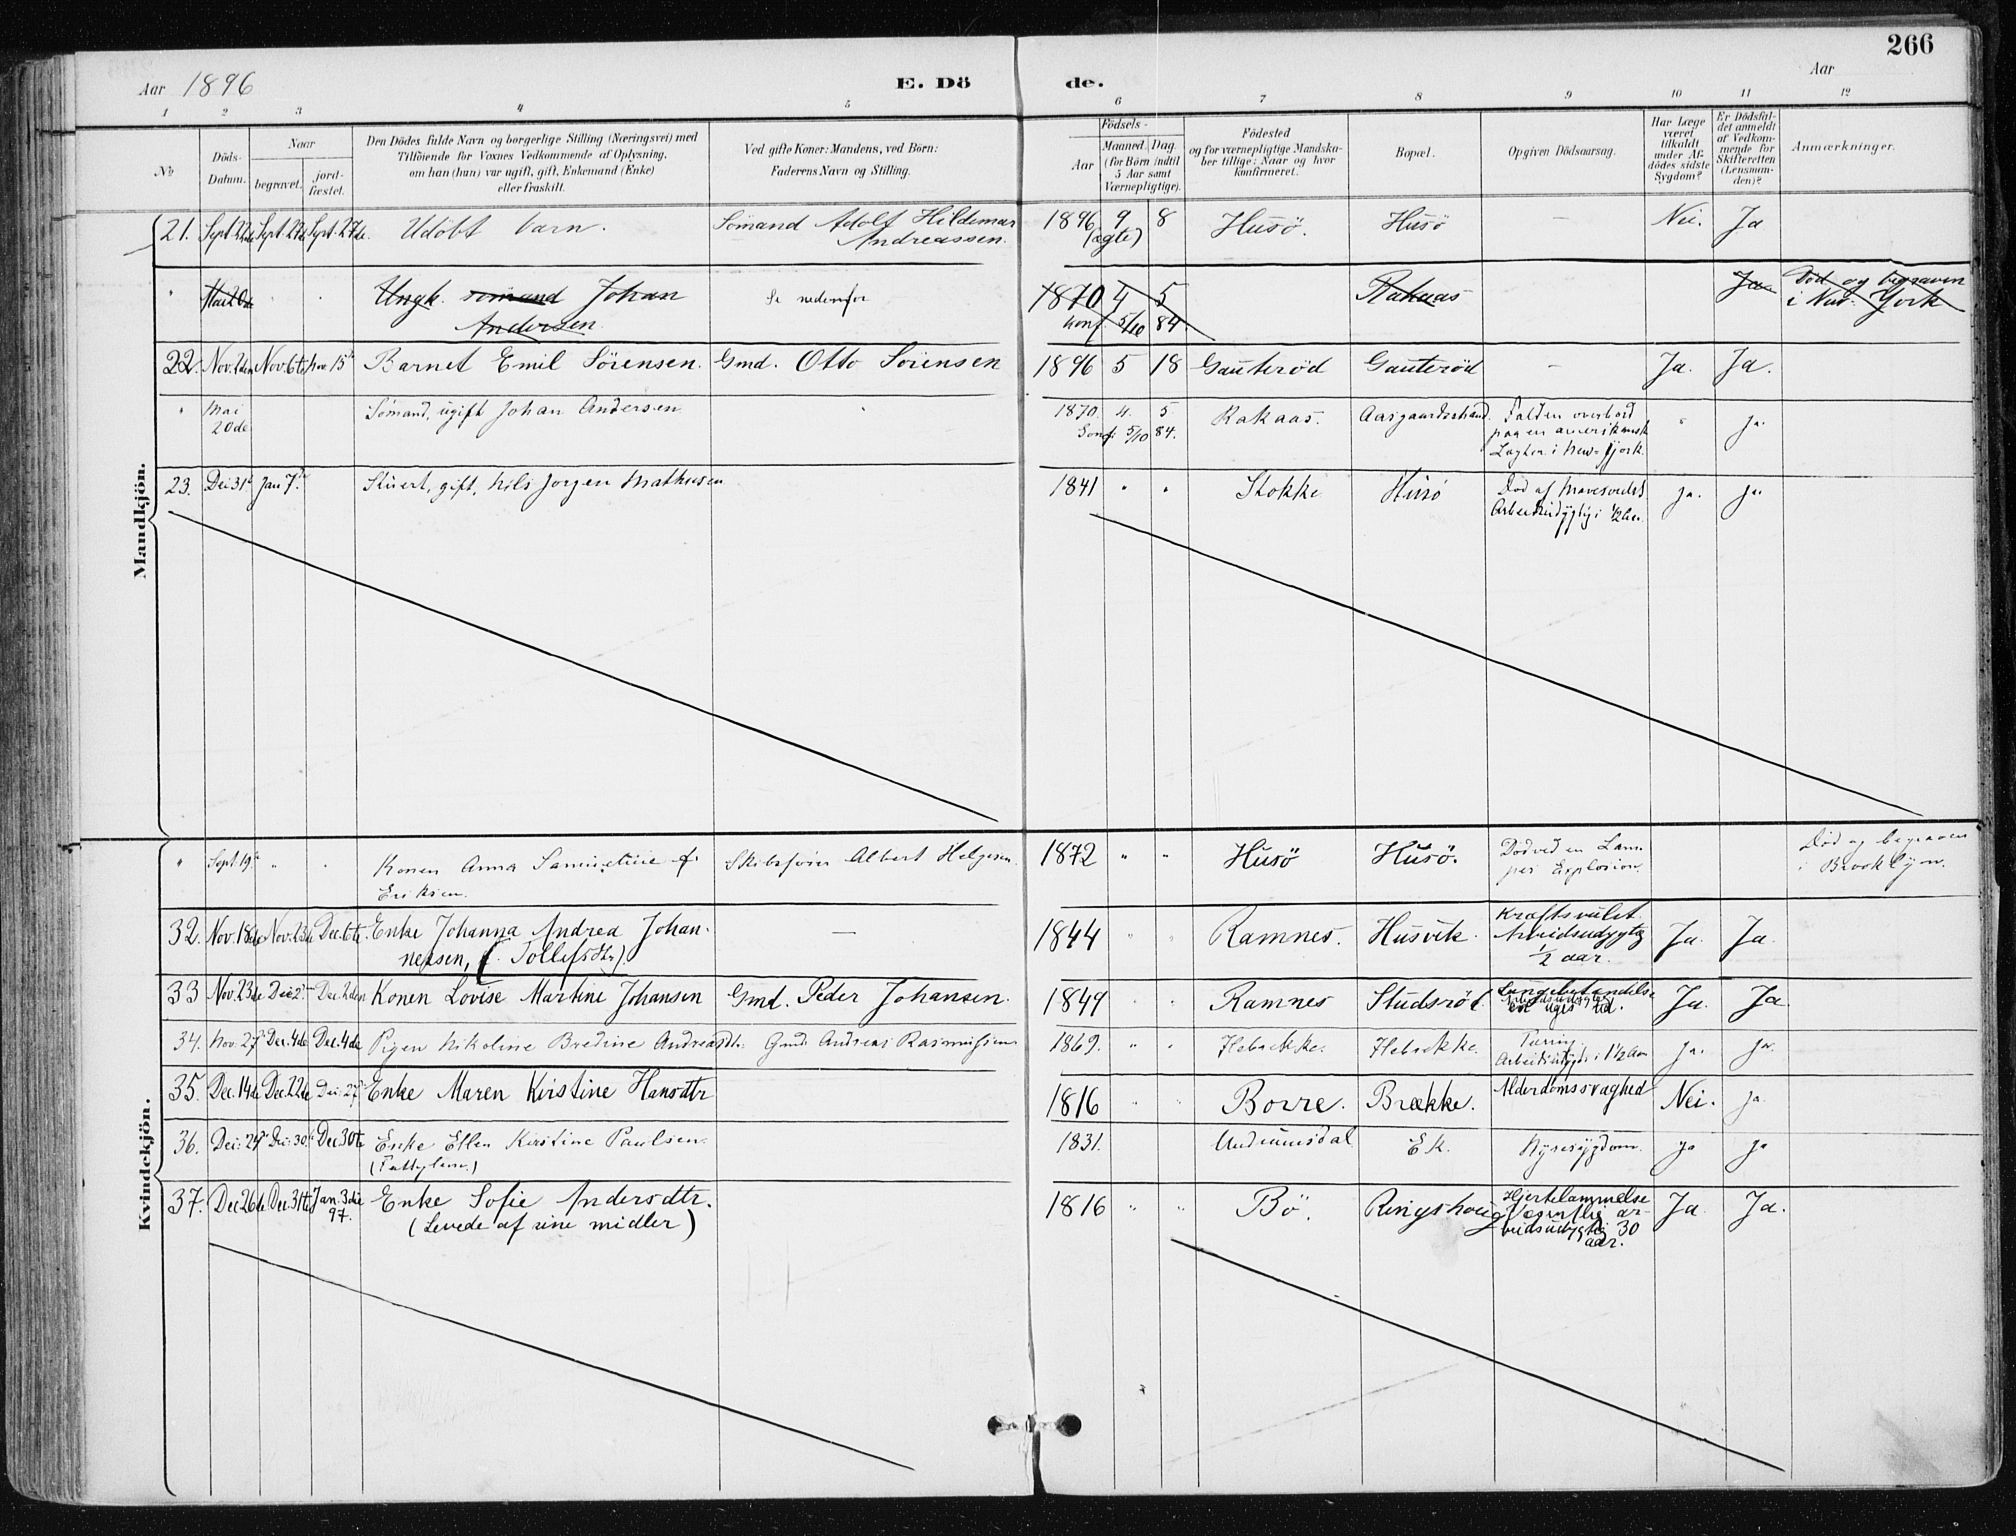 266
Aar 1896
E. Dö
de.
Aar
1 2 3 4 5 6 7 8 9 10 11 12
No
Döds-Datum.
Naar
begravet.
jord-fæstet.
Den Dödes fulde Navn og borgerlige Stilling (Næringsvei) med
Tilföiende for Voxnes Vedkommende af Oplysning,
om han (hun) var ugift, gift, Enkemand (Enke)
eller fraskilt.
Ved gifte Koner: Mandens, ved Börn:
Faderens Navn og Stilling.
Födsels-
Aar
Maaned. Dag
(for Börn indtil
5 Aar samt
Værnepligtige).
Födested
og for værnepligtige Mandska-
ber tillige: Naar og hvor
konfirmeret.
Bopæl.
Opgiven Dödsaarsag.
Har Læge
været
tilkaldt
under Af-
dödes sidste
Sygdom?
Er Dödsfal-
det anmeldt
af Vedkom-
mende for
Skifteretten
(Lensman-
den)?
Anmærkninger.
Mandkjön.
21. Sept. 22de Sept. 27de Sept. 27de. Udöbt barn. Sömand Adolf Hildemar 1896 9 8 Husö. Husö — Nei. Ja
Andreassen. (ægte)
" Mai 20de " " Ungk. sömand Johan Se nedenfor 1870 4 5 Rakaas Ja. Död og begraven
Andersen. konf. 5/10 84. i New York
22. Nov. 2den Nov. 6te Nov. 15de Barnet Emil Sörensen. Gmd. Otto Sörensen 1896 5 18 Gauteröd Gauteröd — Ja. Ja.
" Mai Sömand, ugift Johan Andersen " 1870. 4. 5 Rakaas. Aasgaardsstrand. Falden overbord " Ja.
20de Conf: 5/10 84. paa en amerikansk
Lugter i New-Yjork.
23. Dec. 31te Jan 7de Stuert, gift, Nils Jørgen Mathiesen 1841 " " Stokke Husö Död af Mavesvulst Ja. Ja.
Arbeidsudygtig i 1/2 Aar.
Kvindekjön.
" Sept. 19de " " Konen Anna Saminetine f. Skibsförer Albert Helgesen. 1872 " " Husö Husö. Död ved en Lam- Död og begraven
Eriksen. pes Explosion. i Brooklyn.
32. Nov. 18de Nov. 23de Dec. 6te. Enke Johanna Andrea Johan- — 1844 " " Ramnes. Husvik. Kraftsvulst. Ja. Ja.
nessen, (f. Tollefsdtr). Arbeidsudygtig
1/2 aar.
33 Nov. 23de Dec. 2den Dec. 2den Konen Lovise Martine Johansen Gmd. Peder Johansen. 1849 " " Ramnes Studsröd. Lungebetændelse Ja. Ja
uges tid.
34. Nov. 27de Dec. 4de Dec. 4de Pigen Nikoline Bredine Andreasdtr. Gmd. Andreas Rasmussen 1869. " " Hebække. Hebække. Tæring Ja. Ja.
Arbeidsudygtig i 1 1/2 Aar
35. Dec. 14de Dec. 22de Dec. 27de Enke Maren Kirstine Hansdtr 1816 " " Borre. Brække. Alderdomssvaghed Nei. Ja.
36. Dec. 24de Dec. 30te Dec. 30te Enke Ellen Kirstine Paulsen. 1831. Gudmunsdal Ek. Nyresygdom. Ja Ja
(Fattiglem.)
37. Dec. 26de Dec. 31te Jan. 3die Enke Sofie Andersdtr. 1816 " " Bö. Ringshoug Hjertelammelse Ja Ja.
97. (Levede af sine midler) Væsentlig ar-
beidsudygtig 30
aar.